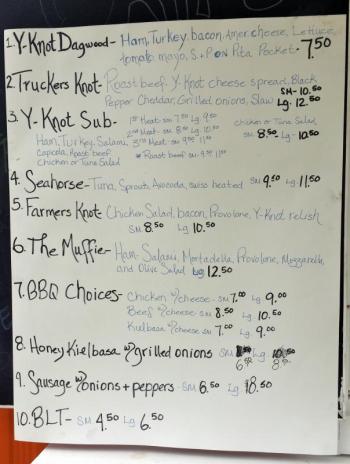 1. Y-Knot Dagwood- Ham, Turkey, bacon, Amer cheese, Lettuce,
tomato, mayo, S+P on Pita Pocket- 7.50
2. Truckers Knot- Roast beef, Y-Knot cheese spread, Black
Pepper Cheddar, Grilled onions, Slaw SM- 10.50
Lg. 12.50
3. Y-Knot Sub- 1st Meat- sm 7.50 Lg 9.50
2nd Meat- sm 8.50 Lg 10.50
3rd Meat- sm 9.50 11.00
* Roast beef- sm 9.50 11.00
chicken or Tuna Salad
SM 8.50 Lg- 10.50
Ham, Turkey, Salami,
Capicola, Roast beef
Chicken or Tuna Salad
4. Seahorse- Tuna, Sprouts, Avocado, swiss heated SM 9.50 Lg 11.50
5. Farmers Knot- Chicken Salad, bacon, Provolone, Y-Knot relish
SM 8.50 Lg 10.50
6. The Muffie- Ham, Salami, Mortadella, Provolone, Mozzarella,
and Olive Salad Lg 12.50
7. BBQ Choices- Chicken w/cheese- SM 7.00 Lg 9.00
Beef w/cheese- SM 8.50 Lg 10.50
Kielbasa w/cheese SM 7.00 Lg 9.00
8. Honey Kielbasa w/grilled onions SM Lg
6.50 8.50
9. Sausage w/onions + peppers- SM 6.50 Lg 8.50
10. BLT- SM 4.50 Lg 6.50